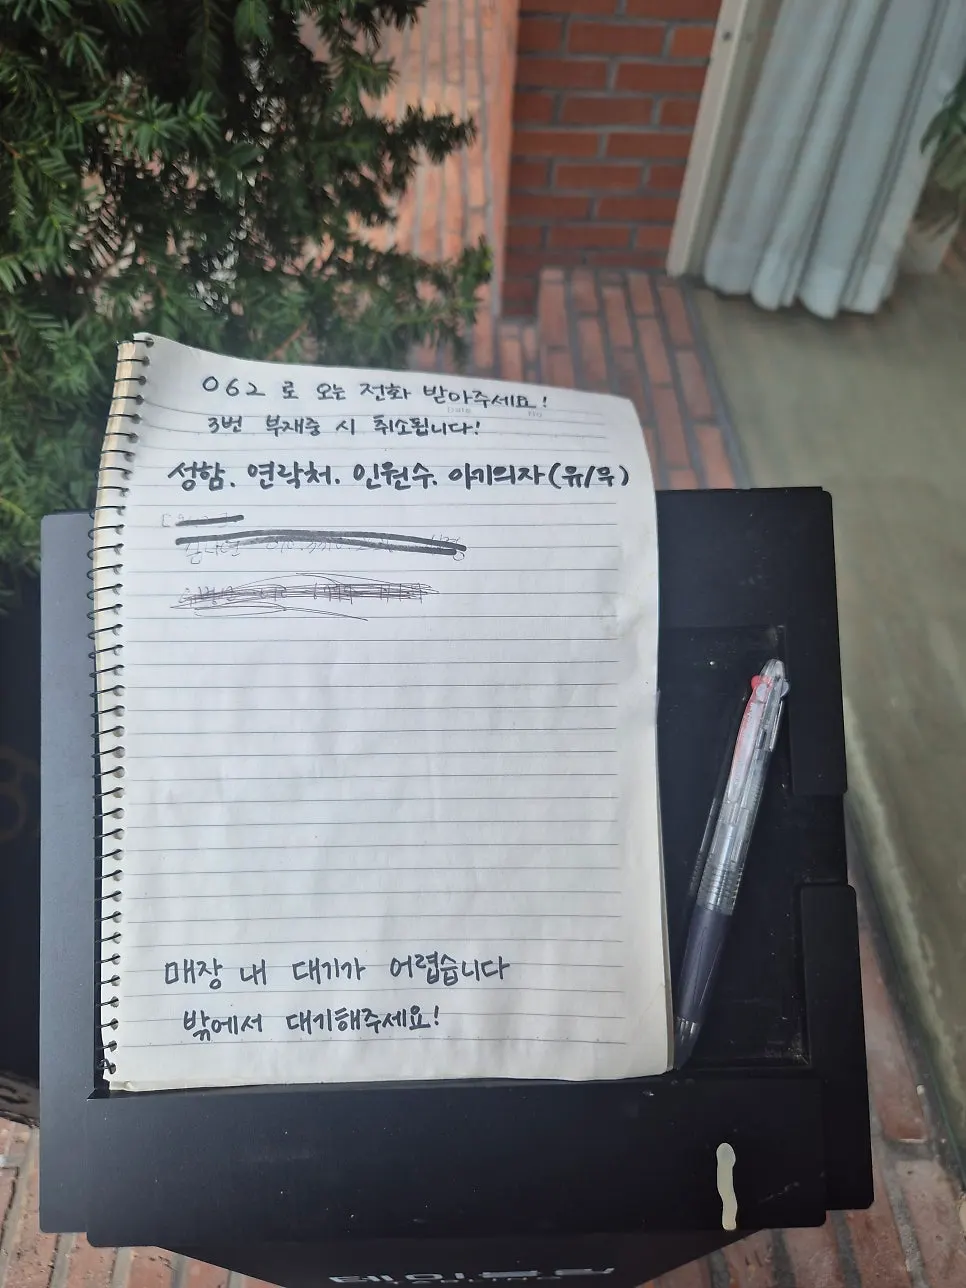 062 로 오는 전화 받아주세요!
3번 부재중 시 취소됩니다!
성함. 연락처. 인원수. 아기의자(유/무)
매장 내 대기가 어렵습니다
밖에서 대기해주세요!
테이블링